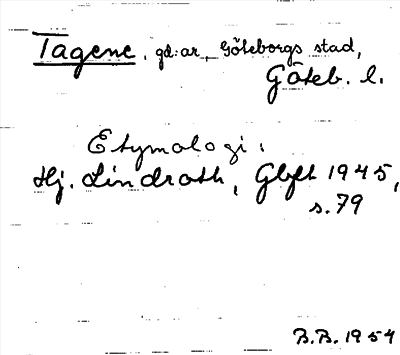 Tagene, gd:ar, Göteborgs stad,
Göteb. l.
Etymologi:
Hj. Lindroth, Gbgft 1945,
s. 79
B.B. 1954